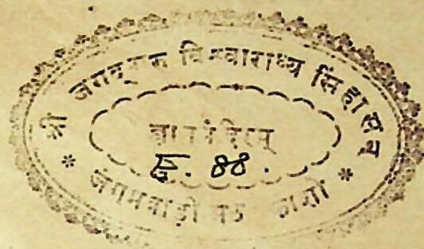 श्री जगद्गुरु विश्वाराध्य सिंहासन
ज्ञानमंदिरम्
E. 88.
* जंगमवाड़ी मठ काशी *